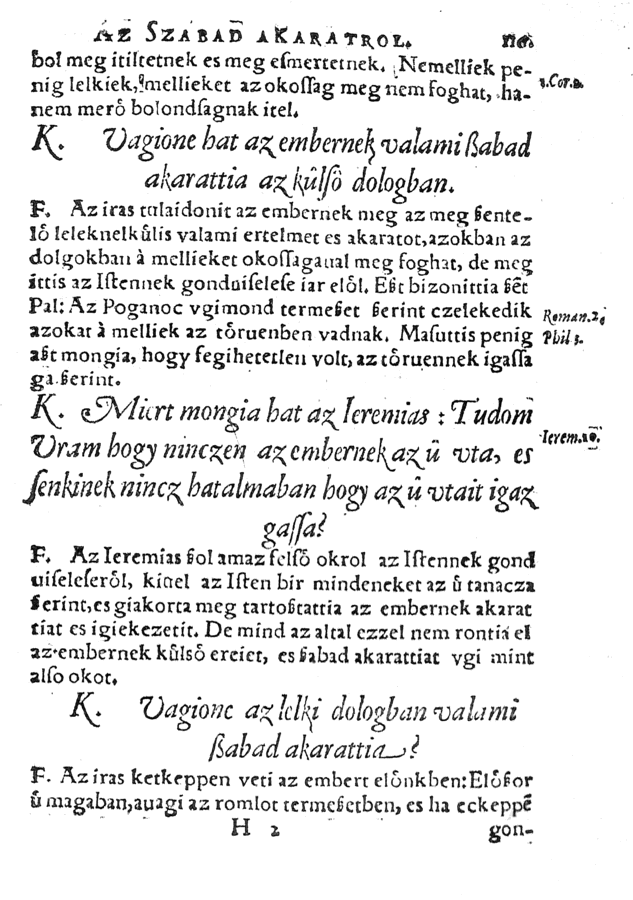 AZ SZABAD AKARATROL.
bol meg itiltetnek es meg esmertetnek. Nemelliek pe-
nig lelkiek, mellieket az okoſſag meg nem foghat, ha- 1.Cor.2.
nem merő bolondsagnak itel.
K. Vagione hat az embernek valami ßabad
akarattia az kûlſô dologban.
F. Az iras tulaidonit az embernek meg az meg ßente-
lô leleknelkûlis valami ertelmet es akaratot, azokban az
dolgokban à mellieket okoſſagaual meg foghat, de meg
ittis az Iſtennek gonduiſeleſe iar elôl. Eßt bizonittia ßẽt
Pal: Az Poganoc vgimond termeßet ßerint czelekedik Roman.2.
azokat à melliek az tôruenben vadnak. Maſuttis penig Phil 3.
aßt mongia, hogy fegihetetlen volt, az tôruennek igaſſa
ga ßerint.
K. Miert mongia hat az Ieremias : Tudom
Vram hogy ninczen az embernek az û vta, es Ierem.10.
ſenkinek nincz hatalmaban hogy az û vtait igaz
gaſſa?
F. Az Ieremias ßol amaz felſô okrol az Iſtennek gond
uiſeleſerôl, kiuel az Iſten bir mindeneket az û tanacza
ßerint, es giakorta meg tartoßtattia az embernek akarat
tiat es igiekezetit. De mind az altal ezzel nem rontia el
az embernek kûlsô ereiet, es ßabad akarattiat vgi mint
alſo okot.
K. Vagione az lelki dologban valami
ßabad akarattia?
F. Az iras ketkeppen veti az embert elônkben: Elôßor
û magaban, auagi az romlot termeßetben, es ha eckeppẽ
H 2 gon-